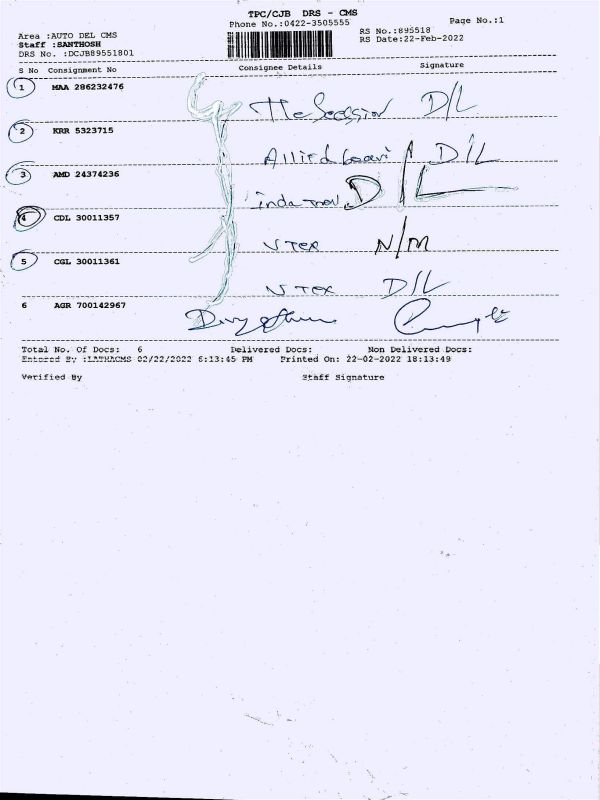 TPC/CJB DRS - CMS
Phone No.:0422-3505555 Page No.:1
Area :AUTO DEL CMS RS No.:895518
Staff :SANTHOSH RS Date:22-Feb-2022
DRS No. :DCJB89551801
S No Consignment No Consignee Details Signature
1 MAA 286232476
The D/L
2 KRR 5323715
Allied D/L
3 AMD 24374236
D/L
4 CDL 30011357
V Tex N/M
5 CGL 30011361
V Tex D/L
6 AGR 700142967
Total No. Of Docs: 6 Delivered Docs: Non Delivered Docs:
Entered By :LATHACMS 02/22/2022 6:13:45 PM Printed On: 22-02-2022 18:13:49
Verified By Staff Signature